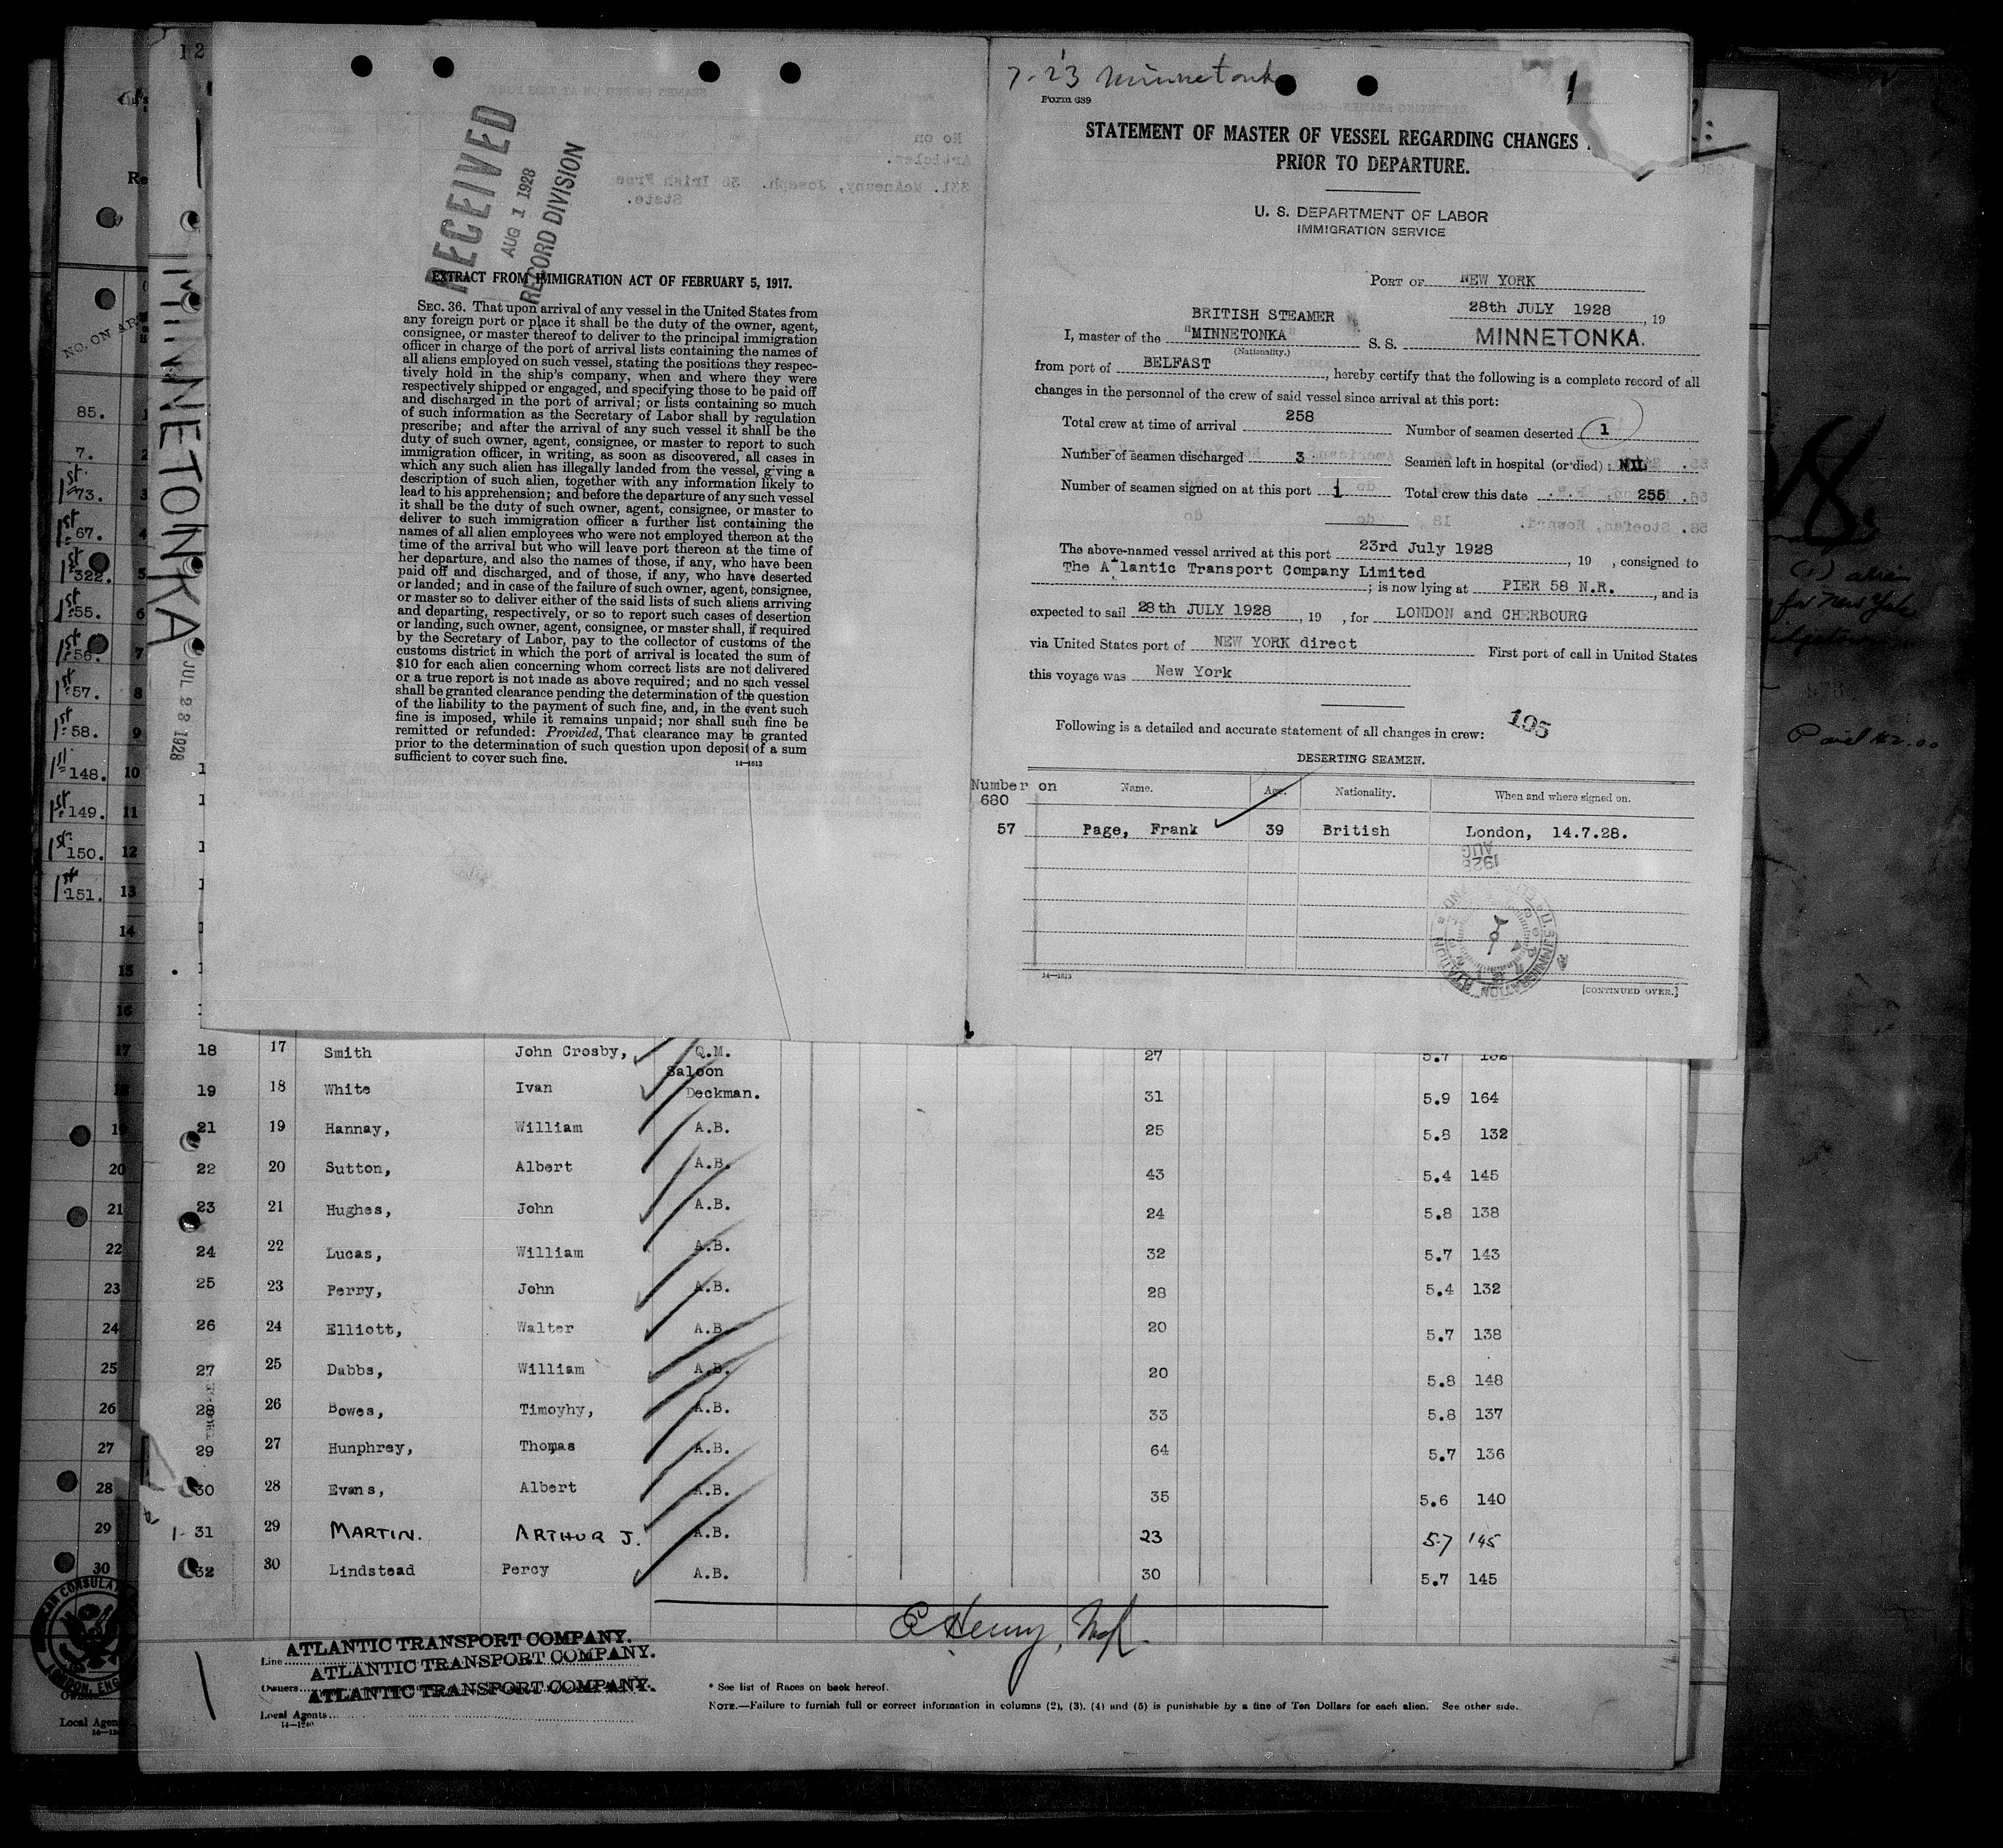 12
RECEIVED
AUG 1 1928
RECORD DIVISION
EXTRACT FROM IMMIGRATION ACT OF FEBRUARY 5, 1917.
SEC. 36. That upon arrival of any vessel in the United States from
any foreign port or place it shall be the duty of the owner, agent,
consignee, or master thereof to deliver to the principal immigration
officer in charge of the port of arrival lists containing the names of
all aliens employed on such vessel, stating the positions they respec-
tively hold in the ship's company, when and where they were
respectively shipped or engaged, and specifying those to be paid off
and discharged in the port of arrival; or lists containing so much
of such information as the Secretary of Labor shall by regulation
prescribe; and after the arrival of any such vessel it shall be the
duty of such owner, agent, consignee, or master to report to such
immigration officer, in writing, as soon as discovered, all cases in
which any such alien has illegally landed from the vessel, giving a
description of such alien, together with any information likely to
lead to his apprehension; and before the departure of any such vessel
it shall be the duty of such owner, agent, consignee, or master to
deliver to such immigration officer a further list containing the
names of all alien employees who were not employed thereon at the
time of the arrival but who will leave port thereon at the time of
her departure, and also the names of those, if any, who have been
paid off and discharged, and of those, if any, who have deserted
or landed; and in case of the failure of such owner, agent, consignee,
or master so to deliver either of the said lists of such aliens arriving
and departing, respectively, or so to report such cases of desertion
or landing, such owner, agent, consignee, or master shall, if required
by the Secretary of Labor, pay to the collector of customs of the
customs district in which the port of arrival is located the sum of
$10 for each alien concerning whom correct lists are not delivered
or a true report is not made as above required; and no such vessel
shall be granted clearance pending the determination of the question
of the liability to the payment of such fine, and, in the event such
fine is imposed, while it remains unpaid; nor shall such fine be
remitted or refunded: Provided, That clearance may be granted
prior to the determination of such question upon deposit of a sum
sufficient to cover such fine.
14—1613
7-23 Minnetonka
Form 689
1
STATEMENT OF MASTER OF VESSEL REGARDING CHANGES
PRIOR TO DEPARTURE.
U. S. DEPARTMENT OF LABOR
IMMIGRATION SERVICE
PORT OF NEW YORK
28th JULY 1928, 19
BRITISH STEAMER
I, master of the "MINNETONKA" S. S. MINNETONKA.
(Nationality.)
from port of BELFAST, hereby certify that the following is a complete record of all
changes in the personnel of the crew of said vessel since arrival at this port:
Total crew at time of arrival 258 Number of seamen deserted 1
Number of seamen discharged 3 Seamen left in hospital (or died) NIL
Number of seamen signed on at this port 1 Total crew this date 255
The above-named vessel arrived at this port 23rd July 1928, 19 , consigned to
The A lantic Transport Company Limited; is now lying at PIER 58 N.R., and is
expected to sail 28th JULY 1928, 19 , for LONDON and CHERBOURG
via United States port of NEW YORK direct First port of call in United States
this voyage was New York
195
Following is a detailed and accurate statement of all changes in crew:
DESERTING SEAMEN.
Number on 680 Name. Age. Nationality. When and where signed on.
57 Page, Frank 39 British London, 14.7.28.
AUG
1928
14—1613
[CONTINUED OVER.]
MINNETONKA
JUL 28 1928
NO. ON
85. 1
7. 2
1st 73. 3
1st 67. 4
1st 322. 5
1st 55. 6
1st 56. 7
1st 57. 8
1st 58. 9
1st 148. 10
1st 149. 11
1st 150. 12
1st 151. 13
14
15
16
17
18
19
20
21
22
23
24
25
26
27
28
29
30
(1) alien
for New York
Paid
18 17 Smith John Crosby, Q.M. 27 5.7 132
19 18 White Ivan Saloon Deckman. 31 5.9 164
21 19 Hannay, William A.B. 25 5.8 132
22 20 Sutton, Albert A.B. 43 5.4 145
23 21 Hughes, John A.B. 24 5.8 138
24 22 Lucas, William A.B. 32 5.7 143
25 23 Perry, John A.B. 28 5.4 132
26 24 Elliott, Walter A.B. 20 5.7 138
27 25 Dabbs, William A.B. 20 5.8 148
28 26 Bowes, Timoyhy, A.B. 33 5.8 137
29 27 Hunphrey, Thomas A.B. 64 5.7 136
30 28 Evans, Albert A.B. 35 5.6 140
1- 31 29 MARTIN. ARTHUR J. A.B. 23 5.7 145
32 30 Lindstead Percy A.B. 30 5.7 145
E Henry,
Line ATLANTIC TRANSPORT COMPANY.
ATLANTIC TRANSPORT COMPANY.
Owners ATLANTIC TRANSPORT COMPANY.
Local Agents
14—1240
* See list of Races on back hereof.
NOTE.—Failure to furnish full or correct information in columns (2), (3), (4) and (5) is punishable by a fine of Ten Dollars for each alien. See other side.
Local Agen